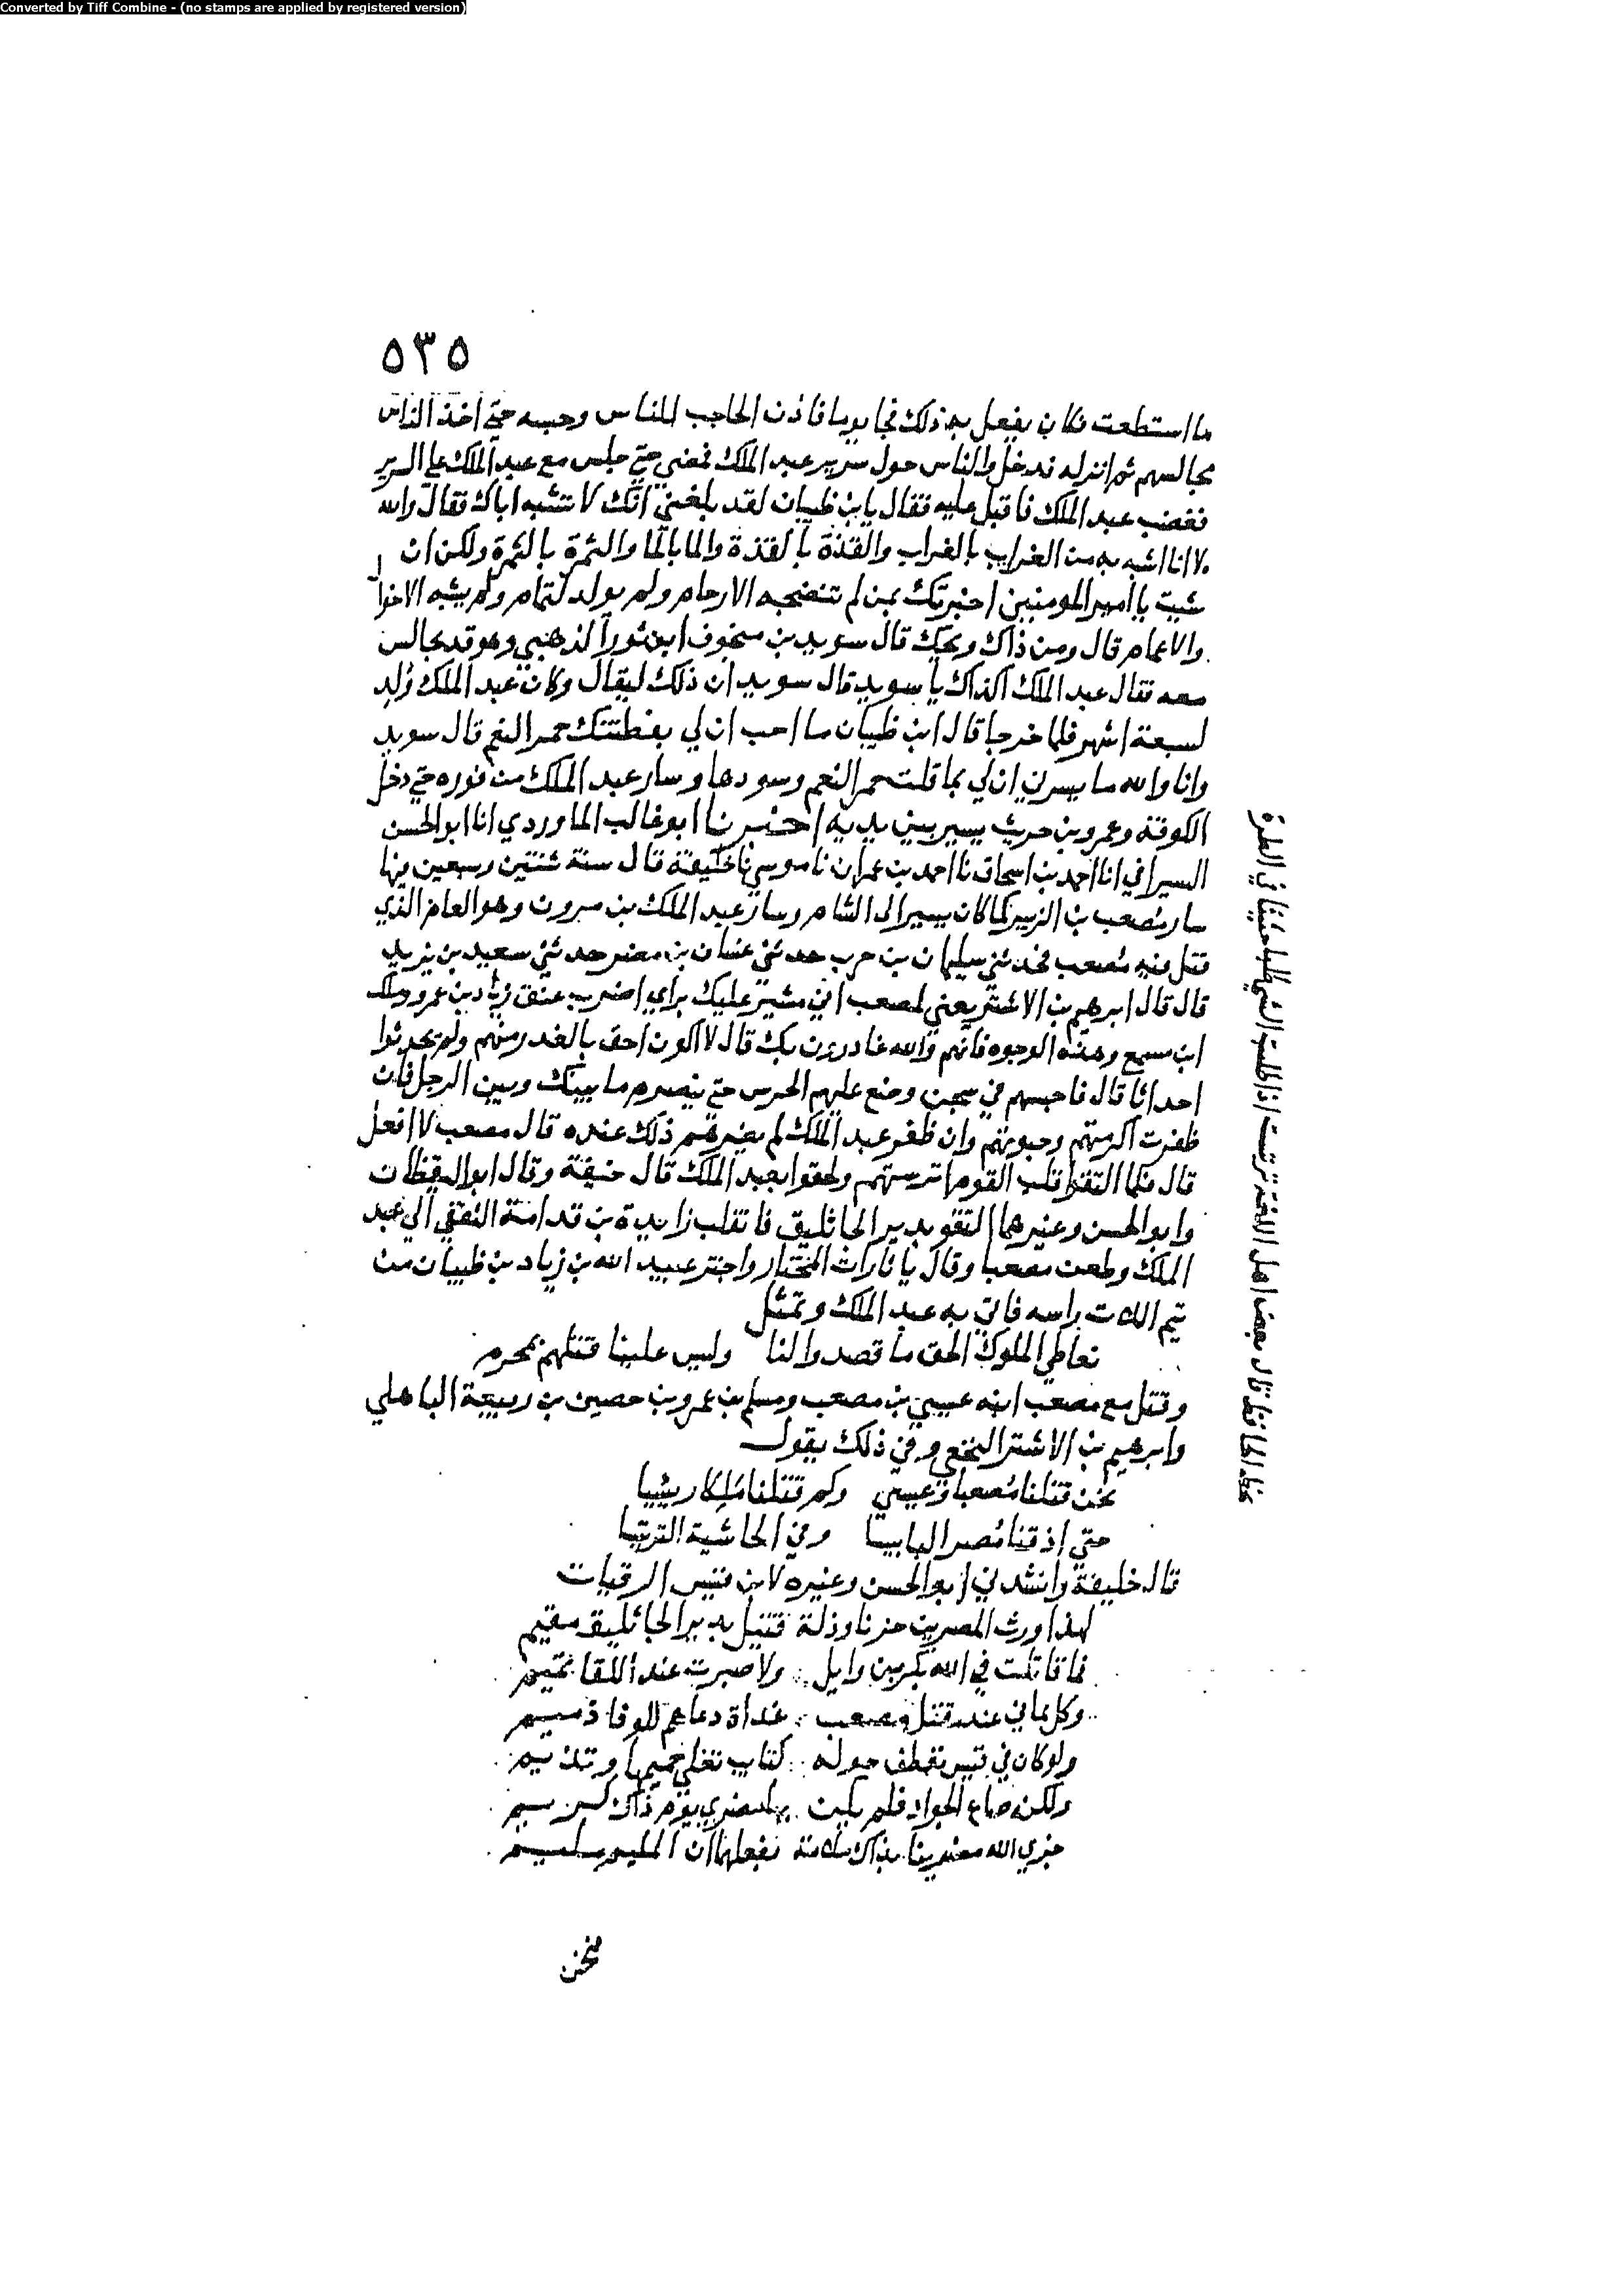 Converted by Tiff Combine - (no stamps are applied by registered version)
٥٣٥
ما استطعت فكان يفعل به ذلك فجا يوما فاذن الحاجب للناس وحبسه حتى اخذ الناس
مجالسهم ثم اذن له فدخل والناس حول سرير عبد الملك فمضي حتي جلس مع عبد الملك علي السرير
فغضب عبد الملك فاقبل عليه فقال يا بن ظبيان لقد بلغني انك لا تشبه اباك فقال والله
لانا اشبه به من الغراب بالغراب والقذة بالقذة والما بالما والتمرة بالتمرة ولكن ان
شيت يا امير المومنين اخبرتك بمن لم تنضجه الارحام ولم يولد لتمام ولم يشبه الاخوال
والاعمام قال ومن ذاك ويحك قال سويد بن منجوف ابن ثور الذهبي وهو قد يجالس
معه فقال عبد الملك اكذاك يا سويد قال سويد ان ذلك ليقال وكان عبد الملك ولد
لسبعة اشهر فلما خرجا قال ابن ظبيان ما احب ان لي بفطنتك حمر النعم قال سويد
وانا والله ما يسرني ان لي بما قلت حمر النعم وسودها وسار عبد الملك من فوره حتي دخل
الكوفة وعمرو بن حريث يسير بين يديه اخبرنا ابو غالب الماوردي انا ابو الحسن
السيرافي انا احمد بن اسحاق نا احمد بن عمران نا موسي نا خليفة قال سنة ثنتين وسبعين فيها
سار مصعب بن الزبير كما كان يسير الى الشام وسار عبد الملك بن مرون وهو العام الذي
قتل فيه مصعب فحدثني سليمان بن حرب حدثني غسان بن مضر حدثني سعيد بن يزيد
قال قال ابرهيم بن الاشتر يعني لمصعب اني مشير عليك براي اضرب عنق زياد بن عمرو وملك
ابن مسمع وهذه الوجوه فانهم والله غادرون بك قال لا اكون احق بالغدر منهم ولم يحدثوا
احداثا قال فاحبسهم في سجن وضع عليهم الحرس حتي ينصرم ما بينك وبين الرجل فان
ظفرت اكرمتهم وحبوتهم وان ظفر عبد الملك لم يضرهم ذلك عنده قال مصعب لا افعل
قال فلما التقوا قلب القوم اترستهم ولحقوا بعبد الملك قال خليفة وقال ابو اليقظان
وابو الحسن وغيرهما التقو بدير الجاثليق فانقلب زايدة بن قدامة الثقفي الي عبد
الملك وطعن مصعبا وقال يا ثارات المختار واحتز عبيد الله بن زياد بن ظبيان من
تيم اللات راسه فاتي به عبد الملك وتمثل
نعاطي الملوك الحق ما قصدوا لنا وليس علينا قتلهم بمحرم
وقتل مع مصعب ابنه عيسي بن مصعب ومسلم بن عمرو بن حصين بن ربيعة الباهلي
وابرهيم بن الاشتر النخعي وفي ذلك يقول
نحن قتلنا مصعبا وعيسي وكم قتلنا ملكا رييسا
حتي اذقنا مضر البابيسا وفي الحاشية التربيسا
قال خليفة وانشدني ابو الحسن وغيره لابن قيس الرقيات
لهذا ورث المصرين حزنا وذلة قتيل بدير الجاثليق مقيم
فما قاتلت في الله بكر بن وايل ولا صبرت عند اللقا تميم
وكل يماني عند قتل مصعب غداة دعاهم للوفا ذميم
ولو كان في قيس تعطف حوله كتايب تغلي حميها وتديم
ولكنه ضاع الجواد فلم يكن بها مضري يوم ذاك كريم
جزي الله مصريا بذاك ملامة بفعلهما ان المليم مليم
فنحن
بخط الحافظ قال بعض اهل اللغة تربست اذا طلبت الشي طلبا حثيثا في الطرة